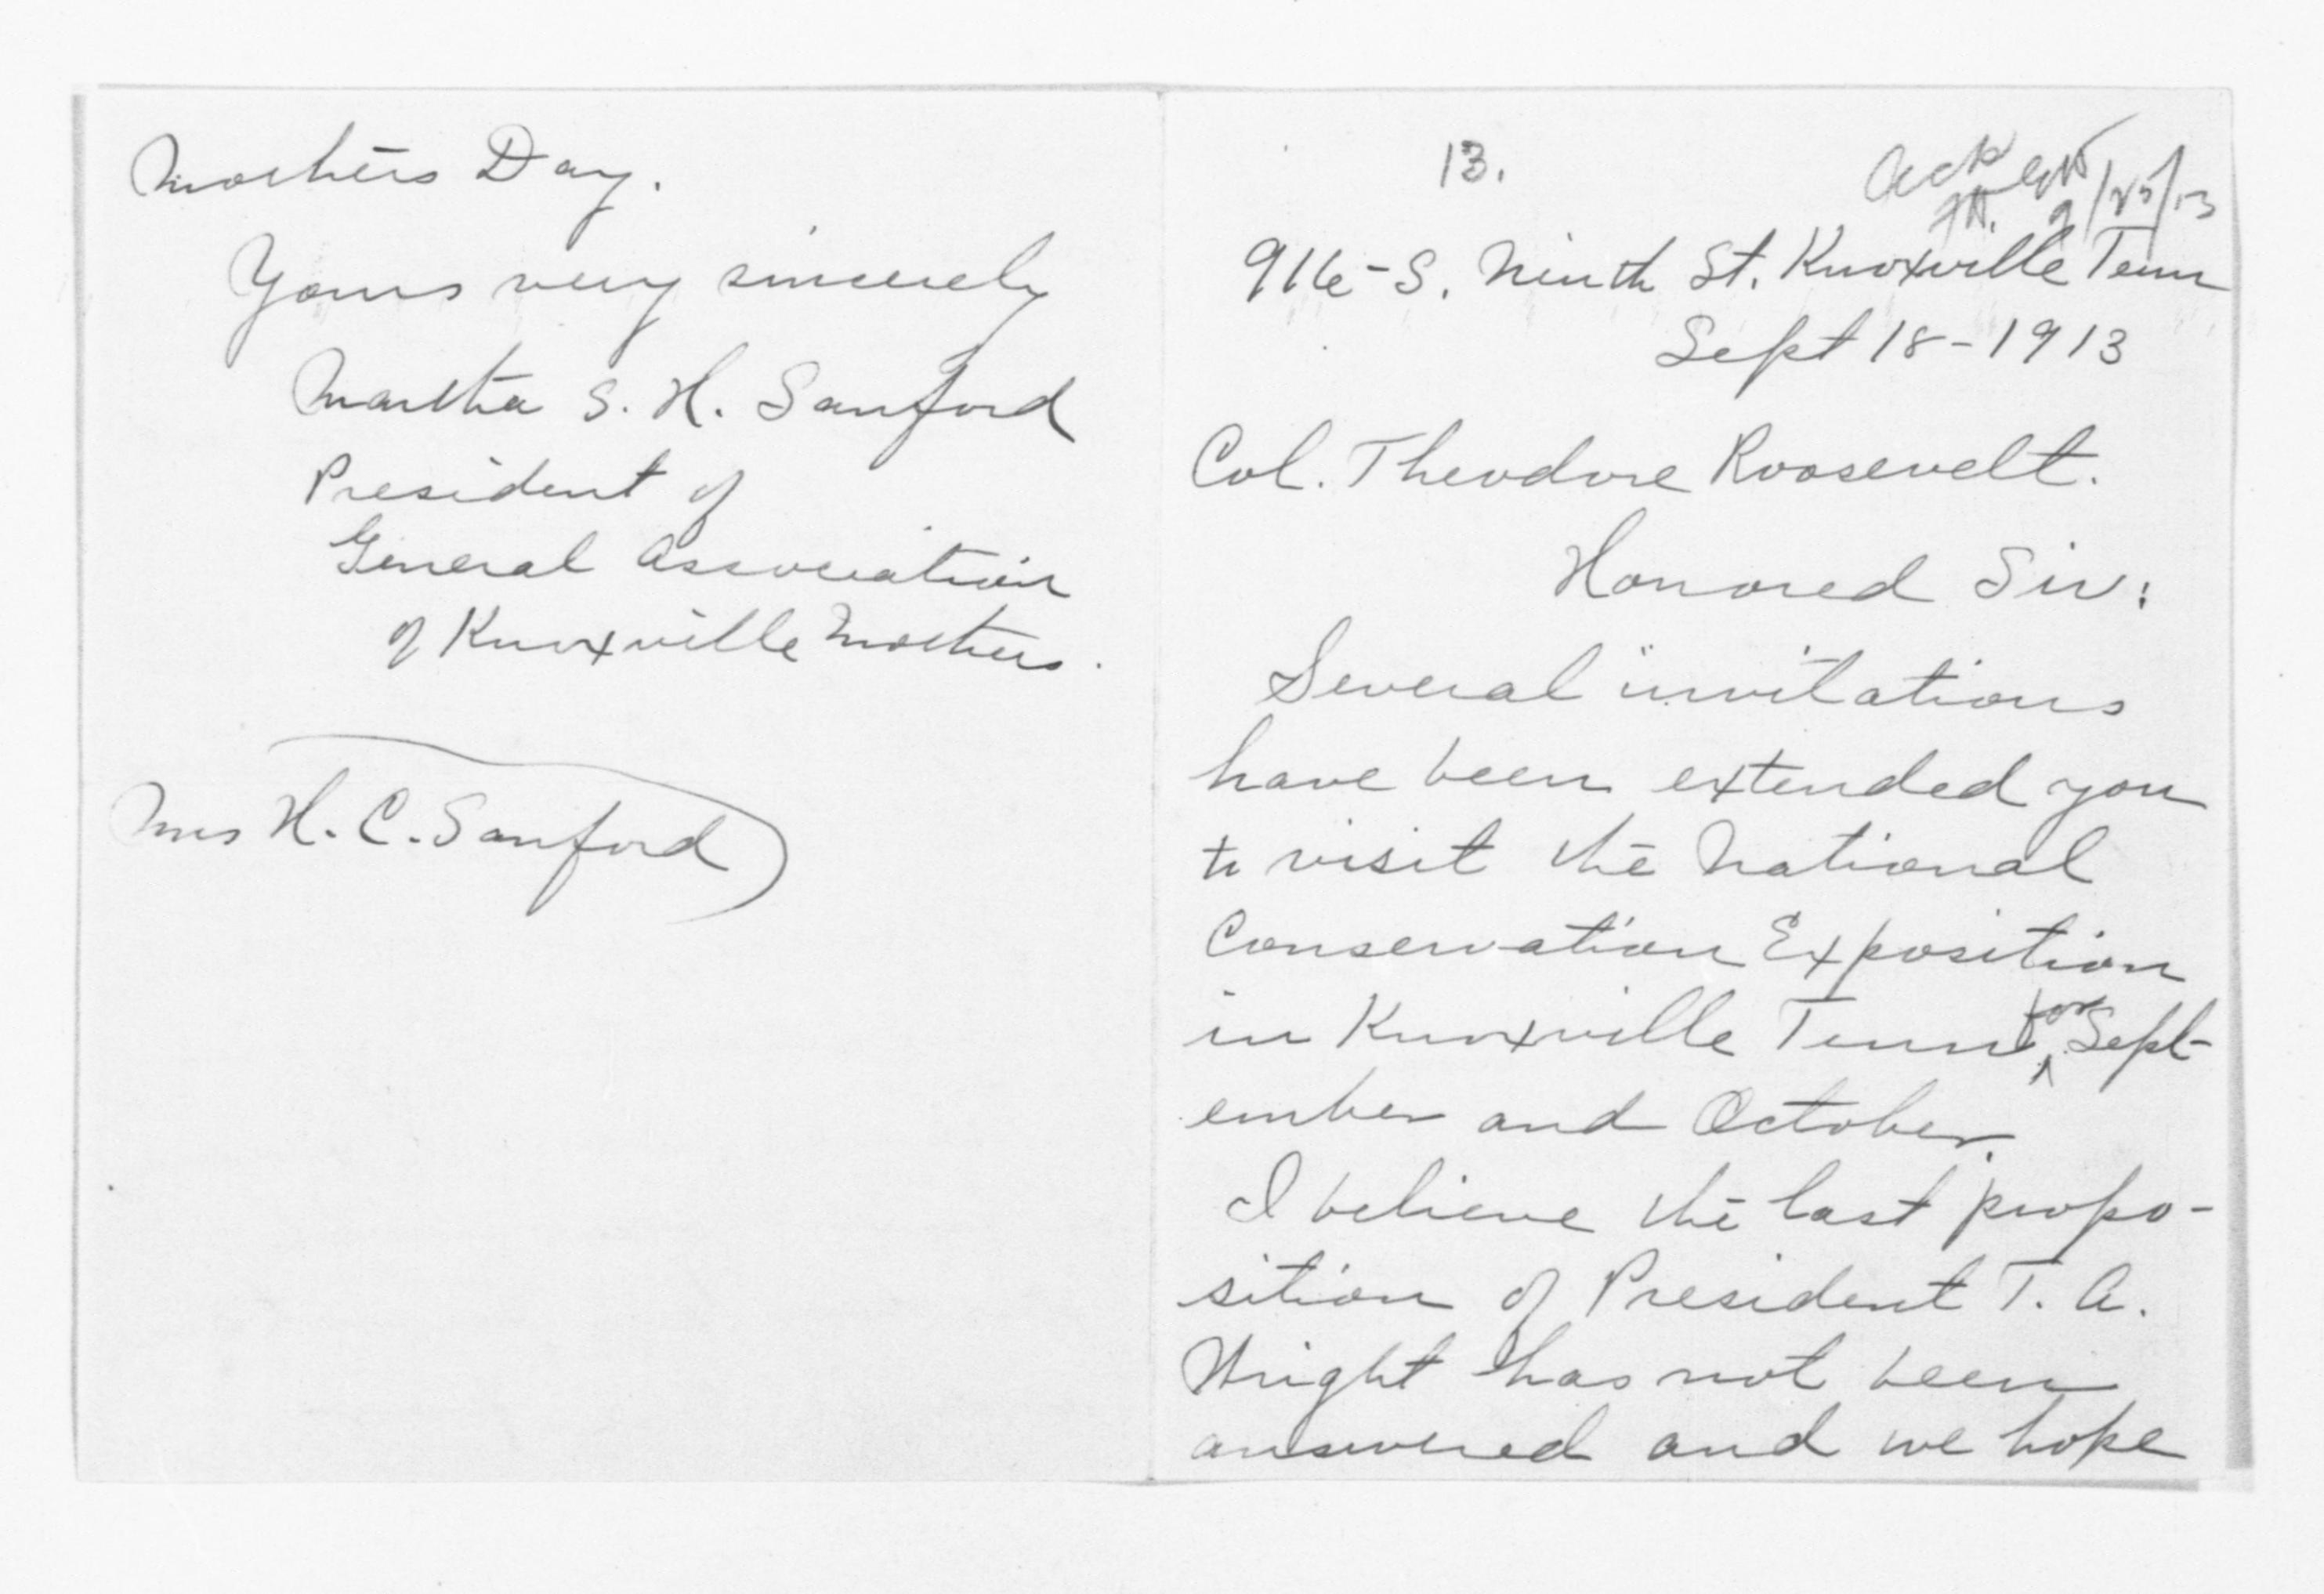 Mothers Day.
Yours very sincerely
Martha S. H. Sanford
President of
General Association
of Knoxville Mothers.
Mrs H. C. Sanford
13.
Ack
9/25/13
916-S. Ninth St. Knoxville Tenn
Sept 18-1913
Col. Theodore Roosevelt.
Honored Sir:
Several invitations
have been extended you
to visit the National
Conservation Exposition
in Knoxville Tenn for Sept-
ember and October.
I believe the last propo-
sition of President T. A.
Wright has not been
answered and we hope